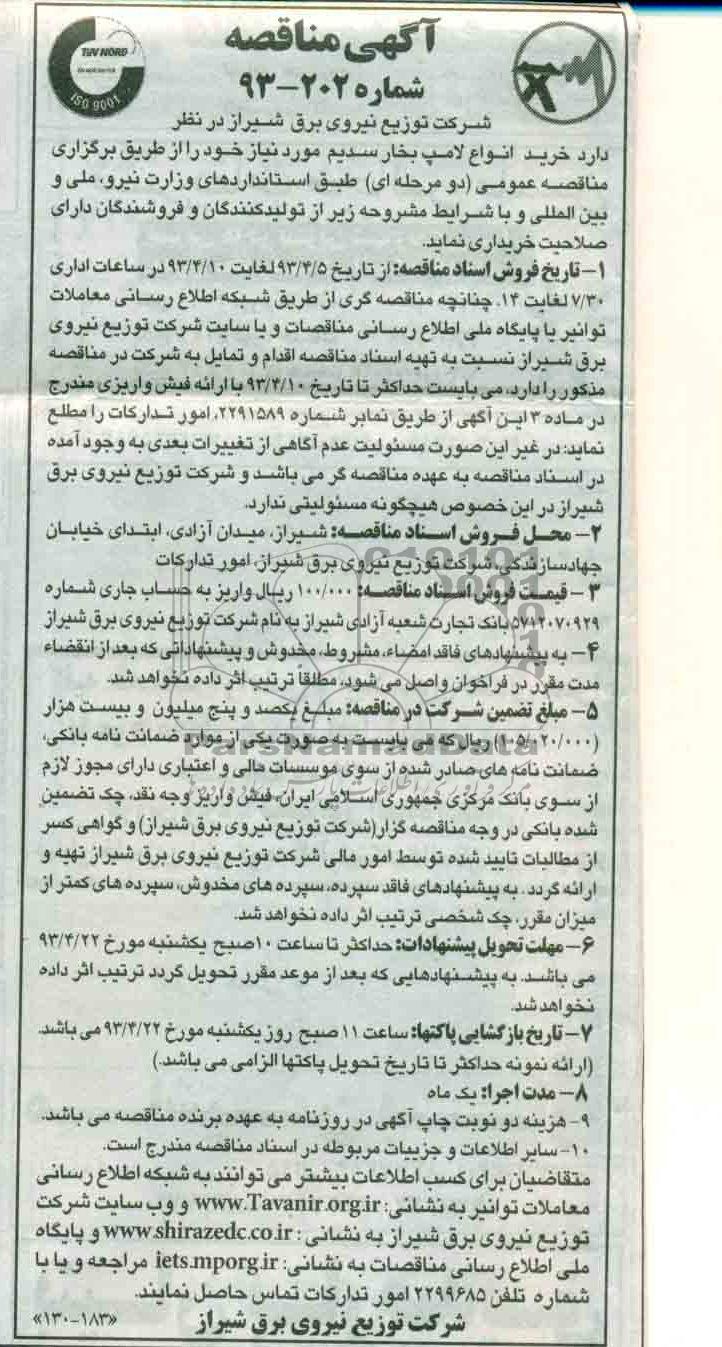 آگهی مناقصه
شماره ۲۰۲-۹۳
TUV NORD
شرکت توزیع نیروی برق شیراز در نظر
دارد خرید انواع لامپ بخار سدیم مورد نیاز خود را از طریق برگزاری
مناقصه عمومی (دو مرحله ای) طبق استانداردهای وزارت نیرو، ملی و
بین المللی و با شرایط مشروحه زیر از تولیدکنندگان و فروشندگان دارای
صلاحیت خریداری نماید.
۱- تاریخ فروش اسناد مناقصه: از تاریخ ۹۳/۴/۵ لغایت ۹۳/۴/۱۰ در ساعات اداری
۷/۳۰ لغایت ۱۴. چنانچه مناقصه گری از طریق شبکه اطلاع رسانی معاملات
توانیر یا پایگاه ملی اطلاع رسانی مناقصات و یا سایت شرکت توزیع نیروی
برق شیراز نسبت به تهیه اسناد مناقصه اقدام و تمایل به شرکت در مناقصه
مذکور را دارد، می بایست حداکثر تا تاریخ ۹۳/۴/۱۰ با ارائه فیش واریزی مندرج
در ماده ۳ این آگهی از طریق نمابر شماره ۲۲۹۱۵۸۹، امور تدارکات را مطلع
نماید؛ در غیر این صورت مسئولیت عدم آگاهی از تغییرات بعدی به وجود آمده
در اسناد مناقصه به عهده مناقصه گر می باشد و شرکت توزیع نیروی برق
شیراز در این خصوص هیچگونه مسئولیتی ندارد.
۲- محل فروش اسناد مناقصه: شیراز، میدان آزادی، ابتدای خیابان
جهادسازندگی، شرکت توزیع نیروی برق شیراز، امور تدارکات
۳- قیمت فروش اسناد مناقصه: ۱۰۰/۰۰۰ ریال واریز به حساب جاری شماره
۵۷۱۲۰۷۰۹۲۹ بانک تجارت شعبه آزادی شیراز به نام شرکت توزیع نیروی برق شیراز
۴- به پیشنهادهای فاقد امضاء، مشروط، مخدوش و پیشنهاداتی که بعد از انقضاء
مدت مقرر در فراخوان واصل می شود، مطلقاً ترتیب اثر داده نخواهد شد.
۵- مبلغ تضمین شرکت در مناقصه: مبلغ یکصد و پنج میلیون و بیست هزار
(۱۰۵/۰۲۰/۰۰۰) ریال که می بایست به صورت یکی از موارد ضمانت نامه بانکی،
ضمانت نامه های صادر شده از سوی موسسات مالی و اعتباری دارای مجوز لازم
از سوی بانک مرکزی جمهوری اسلامی ایران، فیش واریز وجه نقد، چک تضمین
شده بانکی در وجه مناقصه گزار(شرکت توزیع نیروی برق شیراز) و گواهی کسر
از مطالبات تایید شده توسط امور مالی شرکت توزیع نیروی برق شیراز تهیه و
ارائه گردد. به پیشنهادهای فاقد سپرده، سپرده های مخدوش، سپرده های کمتر از
میزان مقرر، چک شخصی ترتیب اثر داده نخواهد شد.
۶- مهلت تحویل پیشنهادات: حداکثر تا ساعت ۱۰صبح یکشنبه مورخ ۹۳/۴/۲۲
می باشد. به پیشنهادهایی که بعد از موعد مقرر تحویل گردد ترتیب اثر داده
نخواهد شد.
۷- تاریخ بازگشایی پاکتها: ساعت ۱۱ صبح روز یکشنبه مورخ ۹۳/۴/۲۲ می باشد.
(ارائه نمونه حداکثر تا تاریخ تحویل پاکتها الزامی می باشد.)
۸- مدت اجرا: یک ماه
۹- هزینه دو نوبت چاپ آگهی در روزنامه به عهده برنده مناقصه می باشد.
۱۰- سایر اطلاعات و جزییات مربوطه در اسناد مناقصه مندرج است.
متقاضیان برای کسب اطلاعات بیشتر می توانند به شبکه اطلاع رسانی
معاملات توانیر به نشانی: www.Tavanir.org.ir و وب سایت شرکت
توزیع نیروی برق شیراز به نشانی: www.shirazedc.co.ir و پایگاه
ملی اطلاع رسانی مناقصات به نشانی: iets.mporg.ir مراجعه و یا با
شماره تلفن ۲۲۹۹۶۸۵ امور تدارکات تماس حاصل نمایند.
شرکت توزیع نیروی برق شیراز
«۱۳۰-۱۸۳»
ParsNamadData